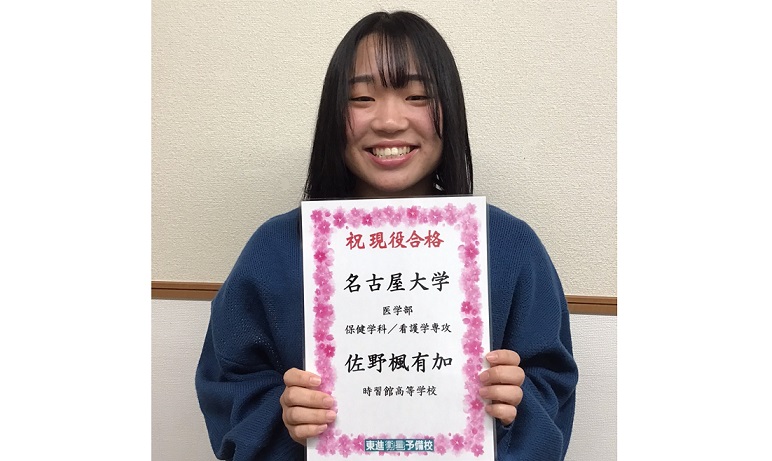 祝 現役合格
名古屋大学
医学部
保健学科／看護学専攻
佐野楓有加
時習館高等学校
東進衛星予備校